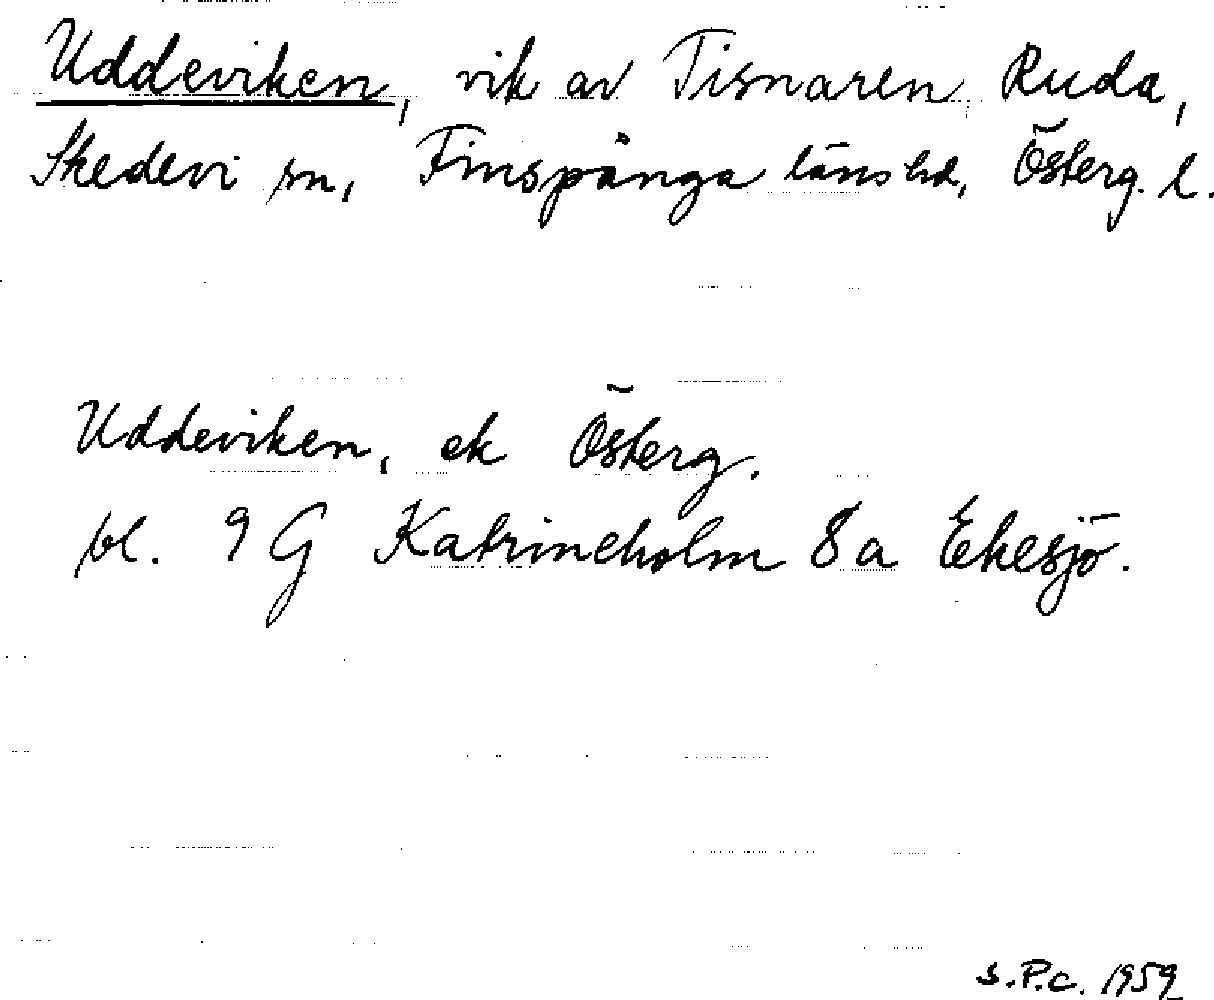 Uddeviken, vik av Tisnaren, Ruda,
Skedevi sn, Finspånga läns hd, Österg. l.
Uddeviken, ek Österg.
bl. 9 G Katrineholm 8 a Ekesjö.
S.P.c. 1959